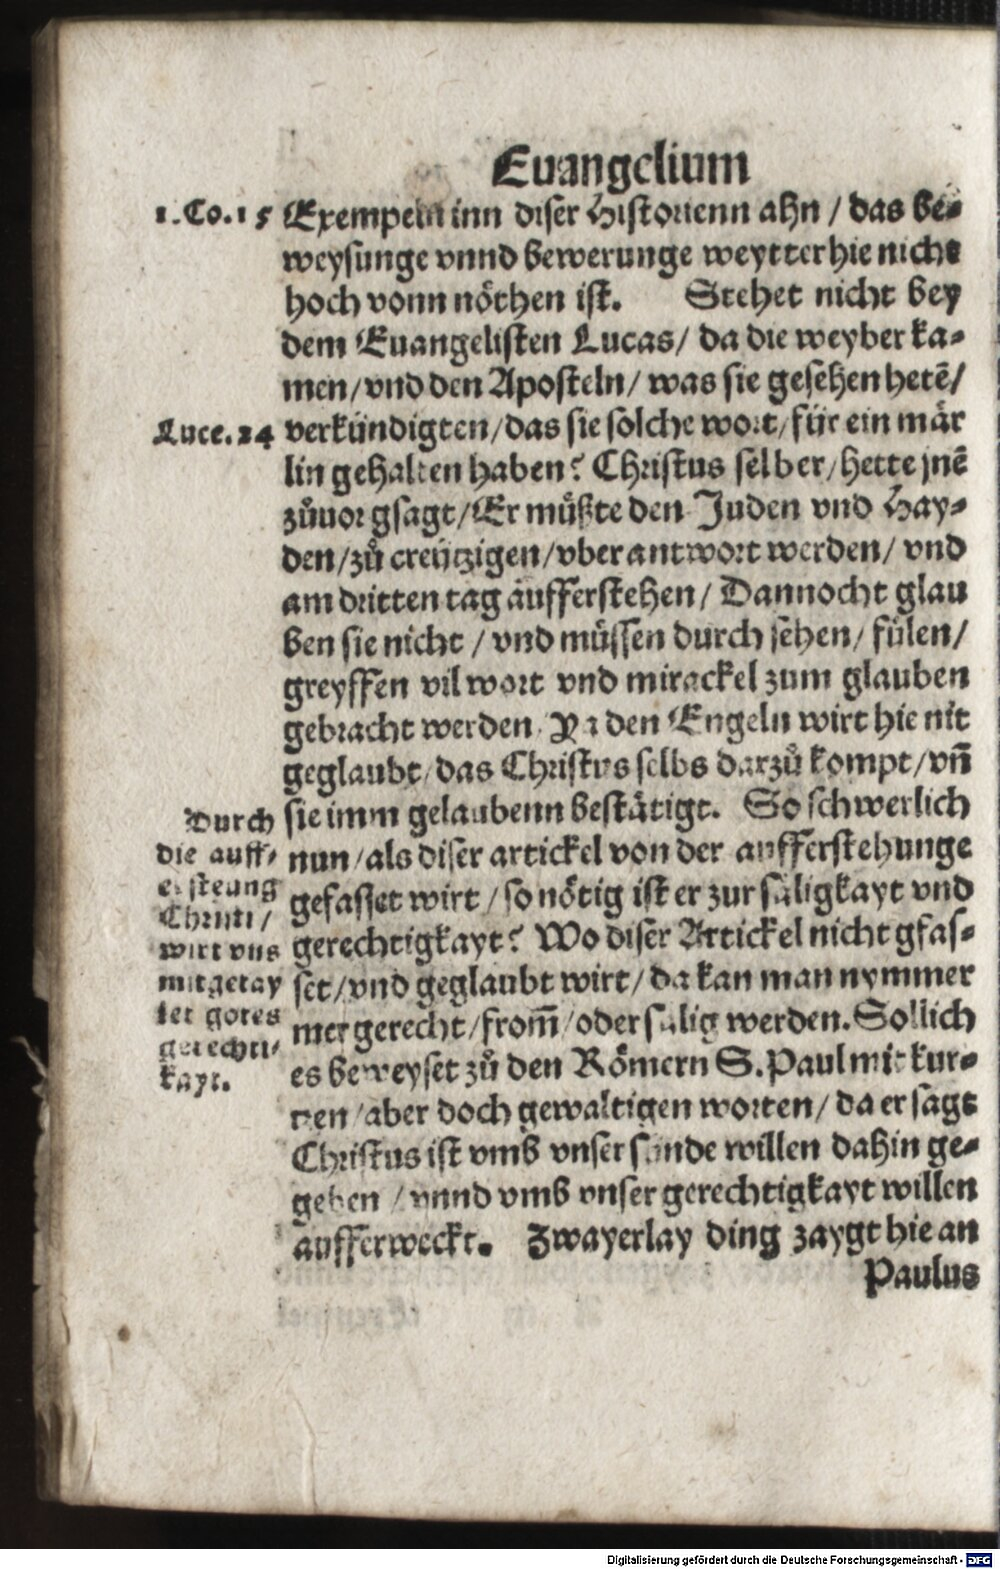 Euangelium
1. Co. 15
Exempeln inn diser Historienn ahn / das be⸗
weysunge vnnd bewerunge weytter hie nicht
hoch vonn nöthen ist. Stehet nicht bey
dem Euangelisten Lucas / da die weyber ka⸗
men / vnd den Aposteln / was sie gesehen hetē /
Luce. 24
verkündigten / das sie solche wort / für ein mär
lin gehalten haben? Christus selber / hette jnē
zůuor gsagt / Er müßte den Juden vnd Hay⸗
den / zů creützigen / vberantwort werden / vnd
am dritten tag aufferstehen / Dannocht glau
ben sie nicht / vnd müssen durch sehen / fülen /
greyffen vil wort vnd mirackel zum glauben
gebracht werden. Ya den Engeln wirt hie nit
geglaubt / das Christus selbs darzů kompt / vñ
sie imm gelaubenn bestätigt. So schwerlich
nun / als diser artickel von der aufferstehunge
gefasset wirt / so nötig ist er zur säligkayt vnd
gerechtigkayt? Wo diser Artickel nicht gfas⸗
set / vnd geglaubt wirt / da kan man nymmer
mer gerecht / from̄ / oder sälig werden. Sollich
es beweyset zů den Römern S. Paul mit kur⸗
tzen / aber doch gewaltigen worten / da er sagt
Christus ist vmb vnser sünde willen dahin ge⸗
geben / vnnd vmb vnser gerechtigkayt willen
aufferweckt. Zwayerlay ding zaygt hie an
Durch
die auff⸗
ersteung
Christi /
wirt vns
mitgetay
let gotes
gerechti⸗
kayt.
Paulus
Digitalisierung gefördert durch die Deutsche Forschungsgemeinschaft - DFG